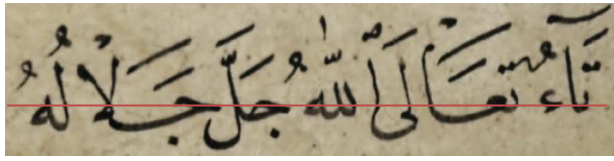 تَآءُ تَعَالَى اَللّٰهُ جَلَّ جَلَالُهُ